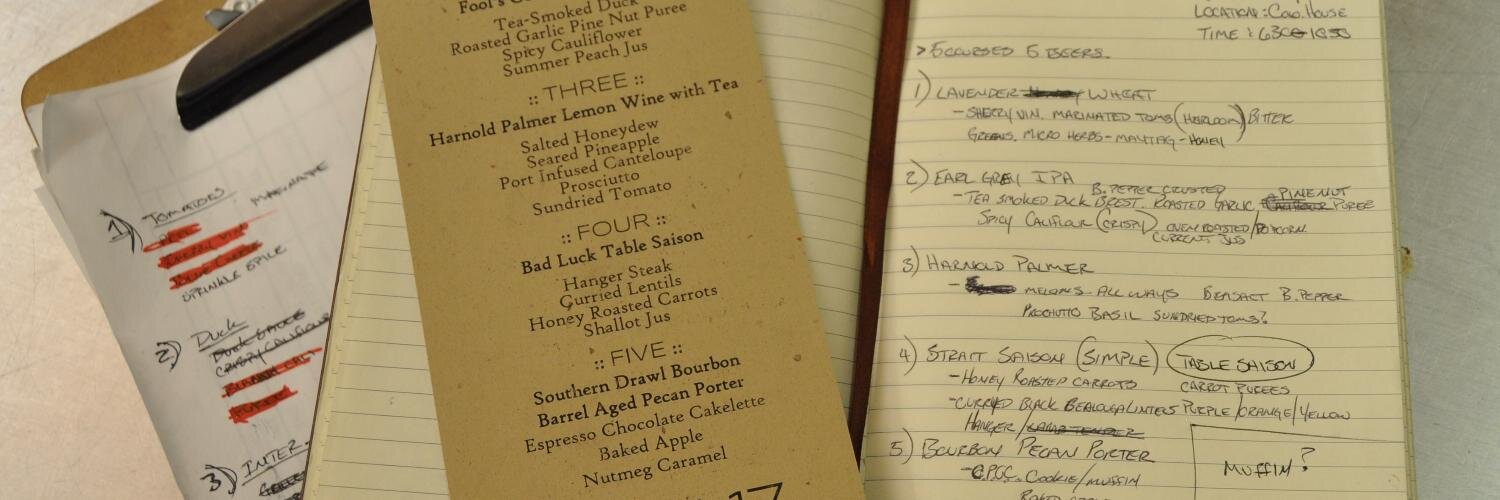 1) TOMATOES
MARINATE
SPRINKLE
2) DUCK
3) INTER.
Fool's
Tea-Smoked Duck
Roasted Garlic Pine Nut Puree
Spicy Cauliflower
Summer Peach Jus
:: THREE ::
Harnold Palmer Lemon Wine with Tea
Salted Honeydew
Seared Pineapple
Port Infused Canteloupe
Prosciutto
Sundried Tomato
:: FOUR ::
Bad Luck Table Saison
Hanger Steak
Curried Lentils
Honey Roasted Carrots
Shallot Jus
:: FIVE ::
Southern Drawl Bourbon
Barrel Aged Pecan Porter
Espresso Chocolate Cakelette
Baked Apple
Nutmeg Caramel
17
LOCATION: COLO. HOUSE
TIME:
> 5 COURSES 5 BEERS.
1) LAVENDER WHEAT
- SHERRY VIN. MARINATED TOMS (HEIRLOOM) BITTER
GREENS. MICRO HERBS - MAYTAG - HONEY
2) EARL GREY IPA
B. PEPPER CRUSTED
- TEA SMOKED DUCK BREST. ROASTED GARLIC PINENUT PUREE
SPICY CALIFLOUR (CRISPY) OVEN ROASTED/POPCORN
CURRENT JUS
3) HARNOLD PALMER
- MELONS - ALL WAYS B. PEPPER
BASIL SUNDRIED TOMS?
4) STRAIT SAISON (SIMPLE) TABLE SAISON
- HONEY ROASTED CARROTS CARROT PUREES
- CURRYED BLACK PURPLE/ORANGE/YELLOW
HANGER/
5) BOURBON PECAN PORTER
COOKIE/MUFFIN
MUFFIN?